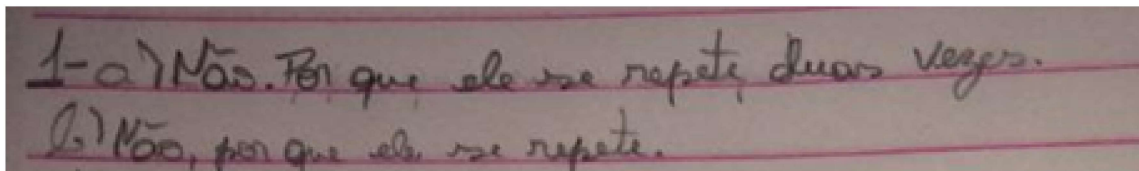 1-a) Não. Por que ele se repete duas vezes.
b) Não, por que ele se repete.